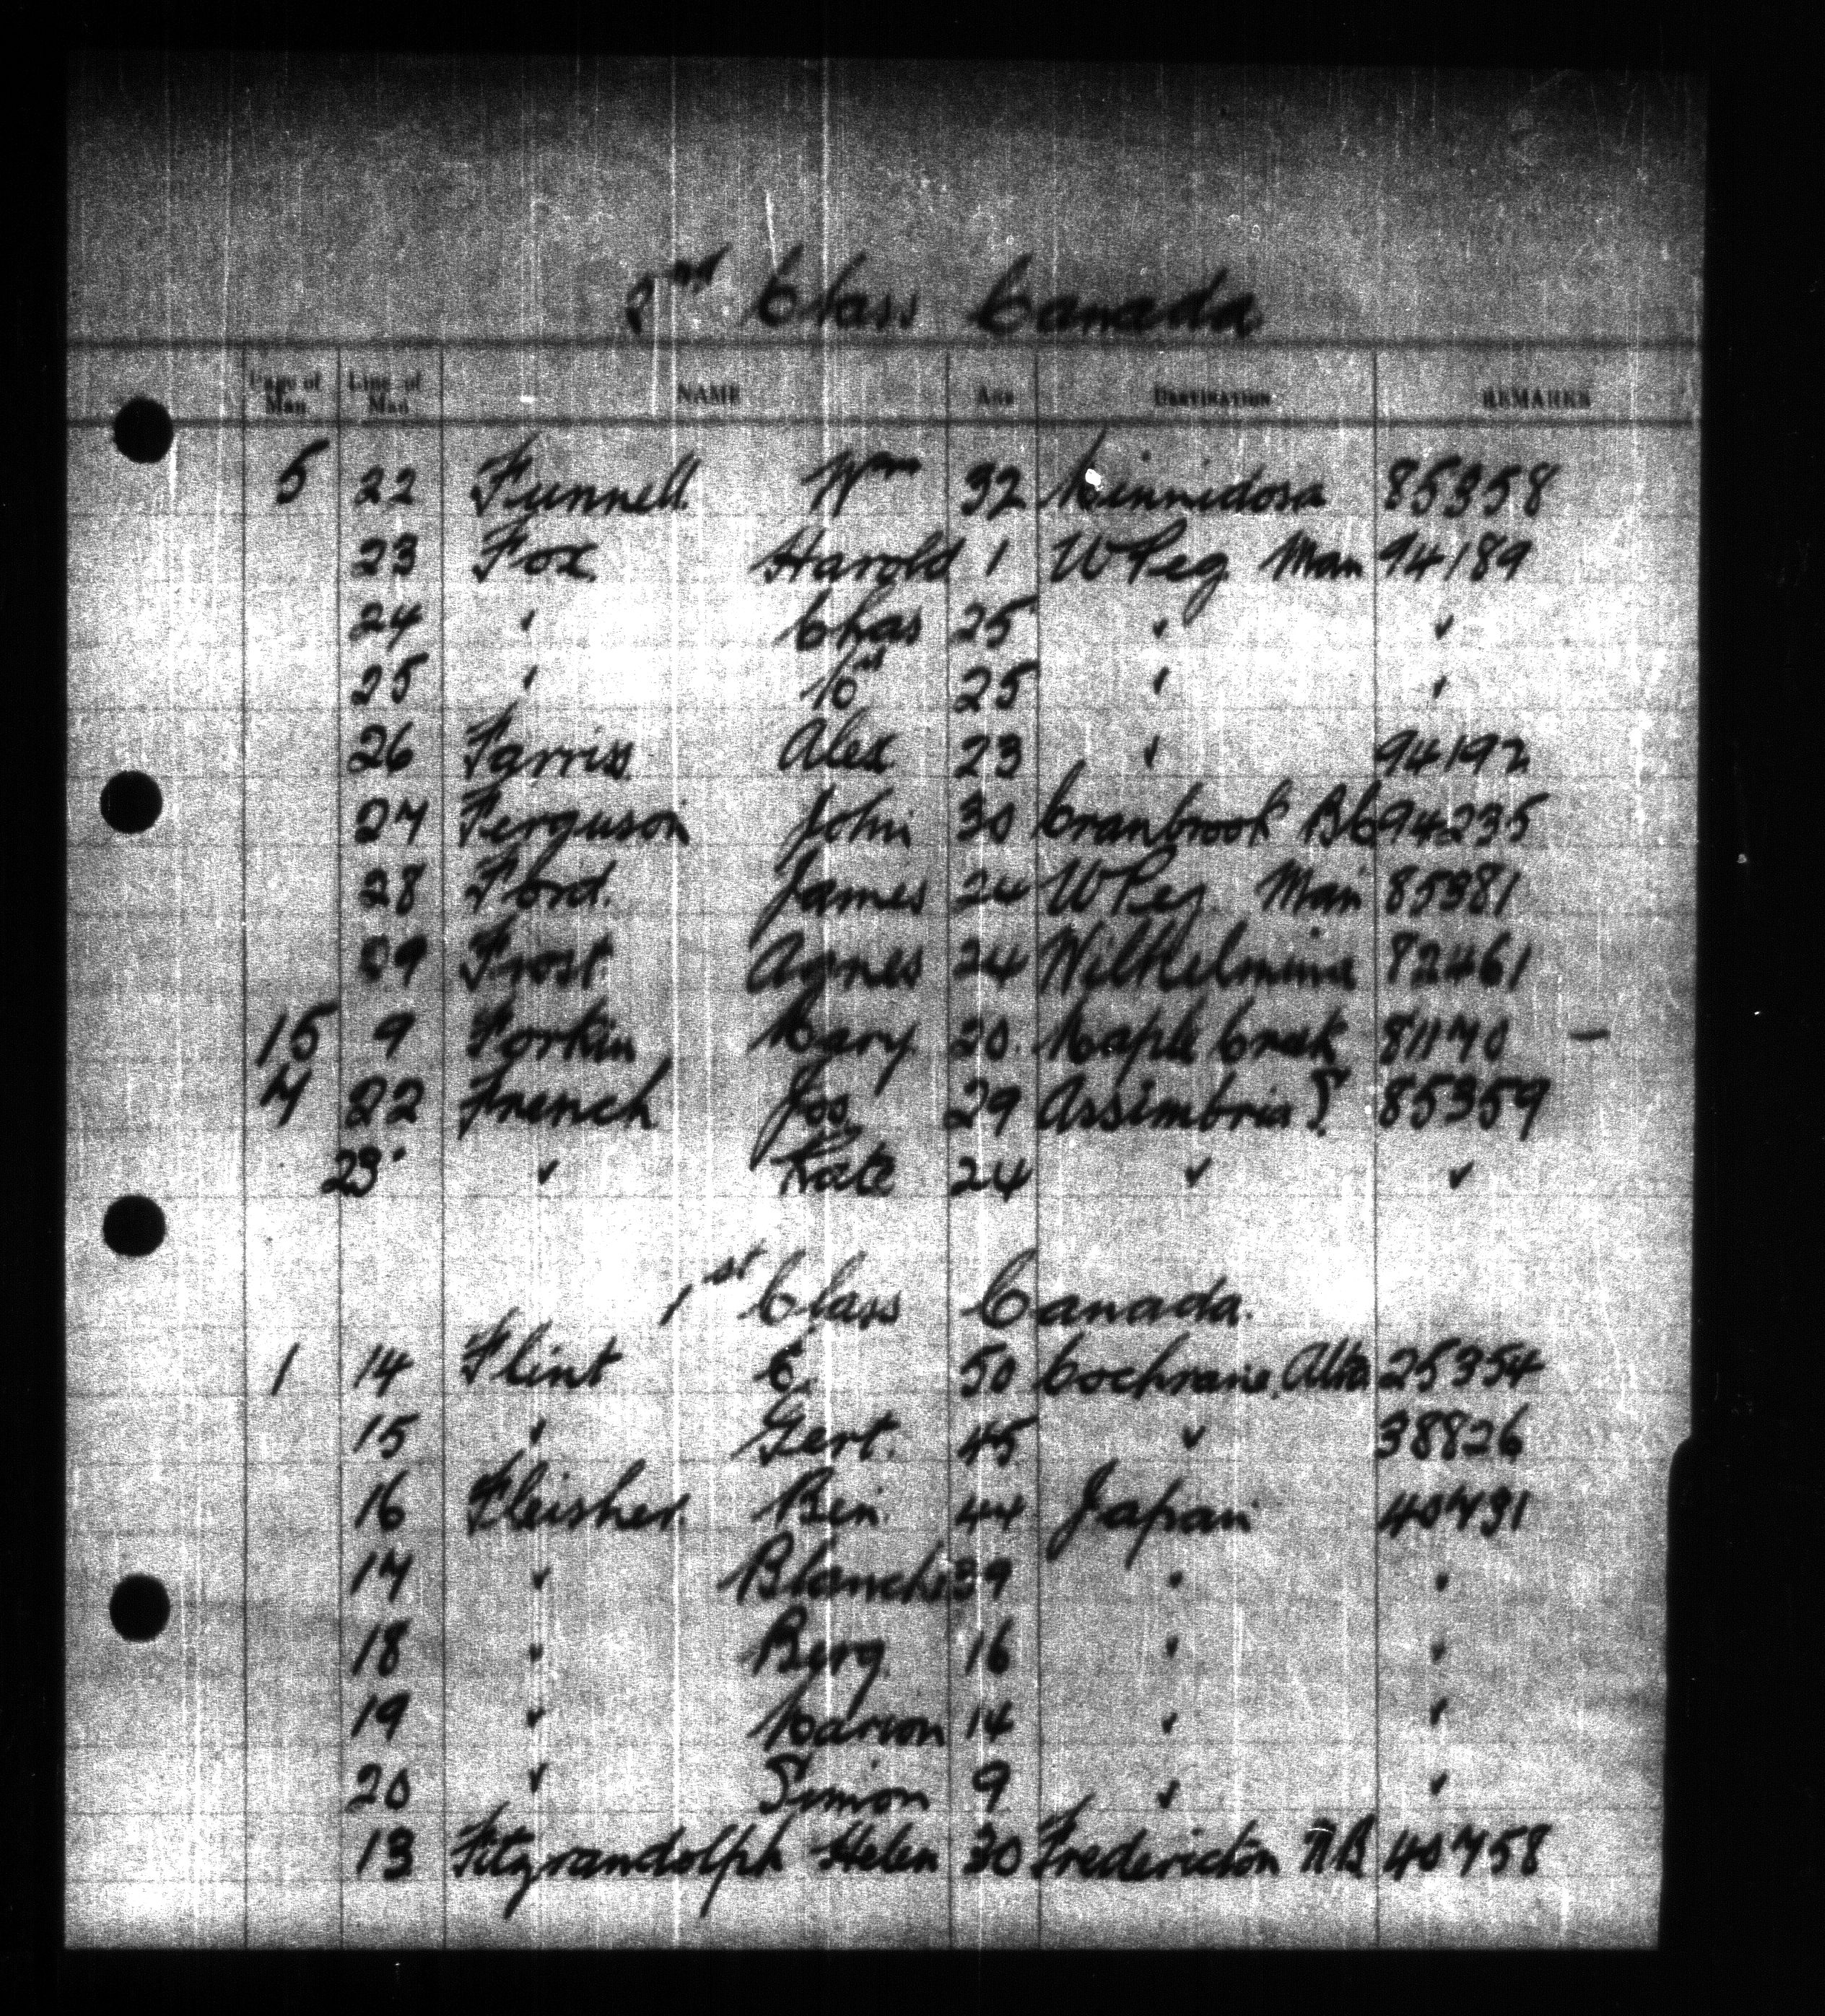 2nd Class Canada.
Page of Man. Line of Man NAME AGE DESTINATION REMARKS
5 22 Funnell. Wm 32 Minnidosa 85358
23 Fox. Harold 1 WPeg. Man 94189
24 " Chas 25 " "
25 " 25 " "
26 Farriss Alex. 23 " 94192
27 Ferguson John 30 Cranbrook BC 94235
28 Ford. James 24 WPeg. Man 85381
29 Frost. Agnes 24 Wilhelmina 82461
15 9 Forkin Mary. 20. Maple Creek 81170 —
7 22 French Jos. 29 85359
23 " Kate 24 " "
1st Class Canada.
1 14 Flint C. 50 Cochrane, Alta 25354
15 " Gert. 45 " 38826
16 Fleisher. Ben. 44 Japan 40731
17 " Blanche 39 " "
18 " 16 " "
19 " Marion 14 " "
20 " Simon 9 " "
13 Fitzrandolph Helen 30 Fredericton NB 40758